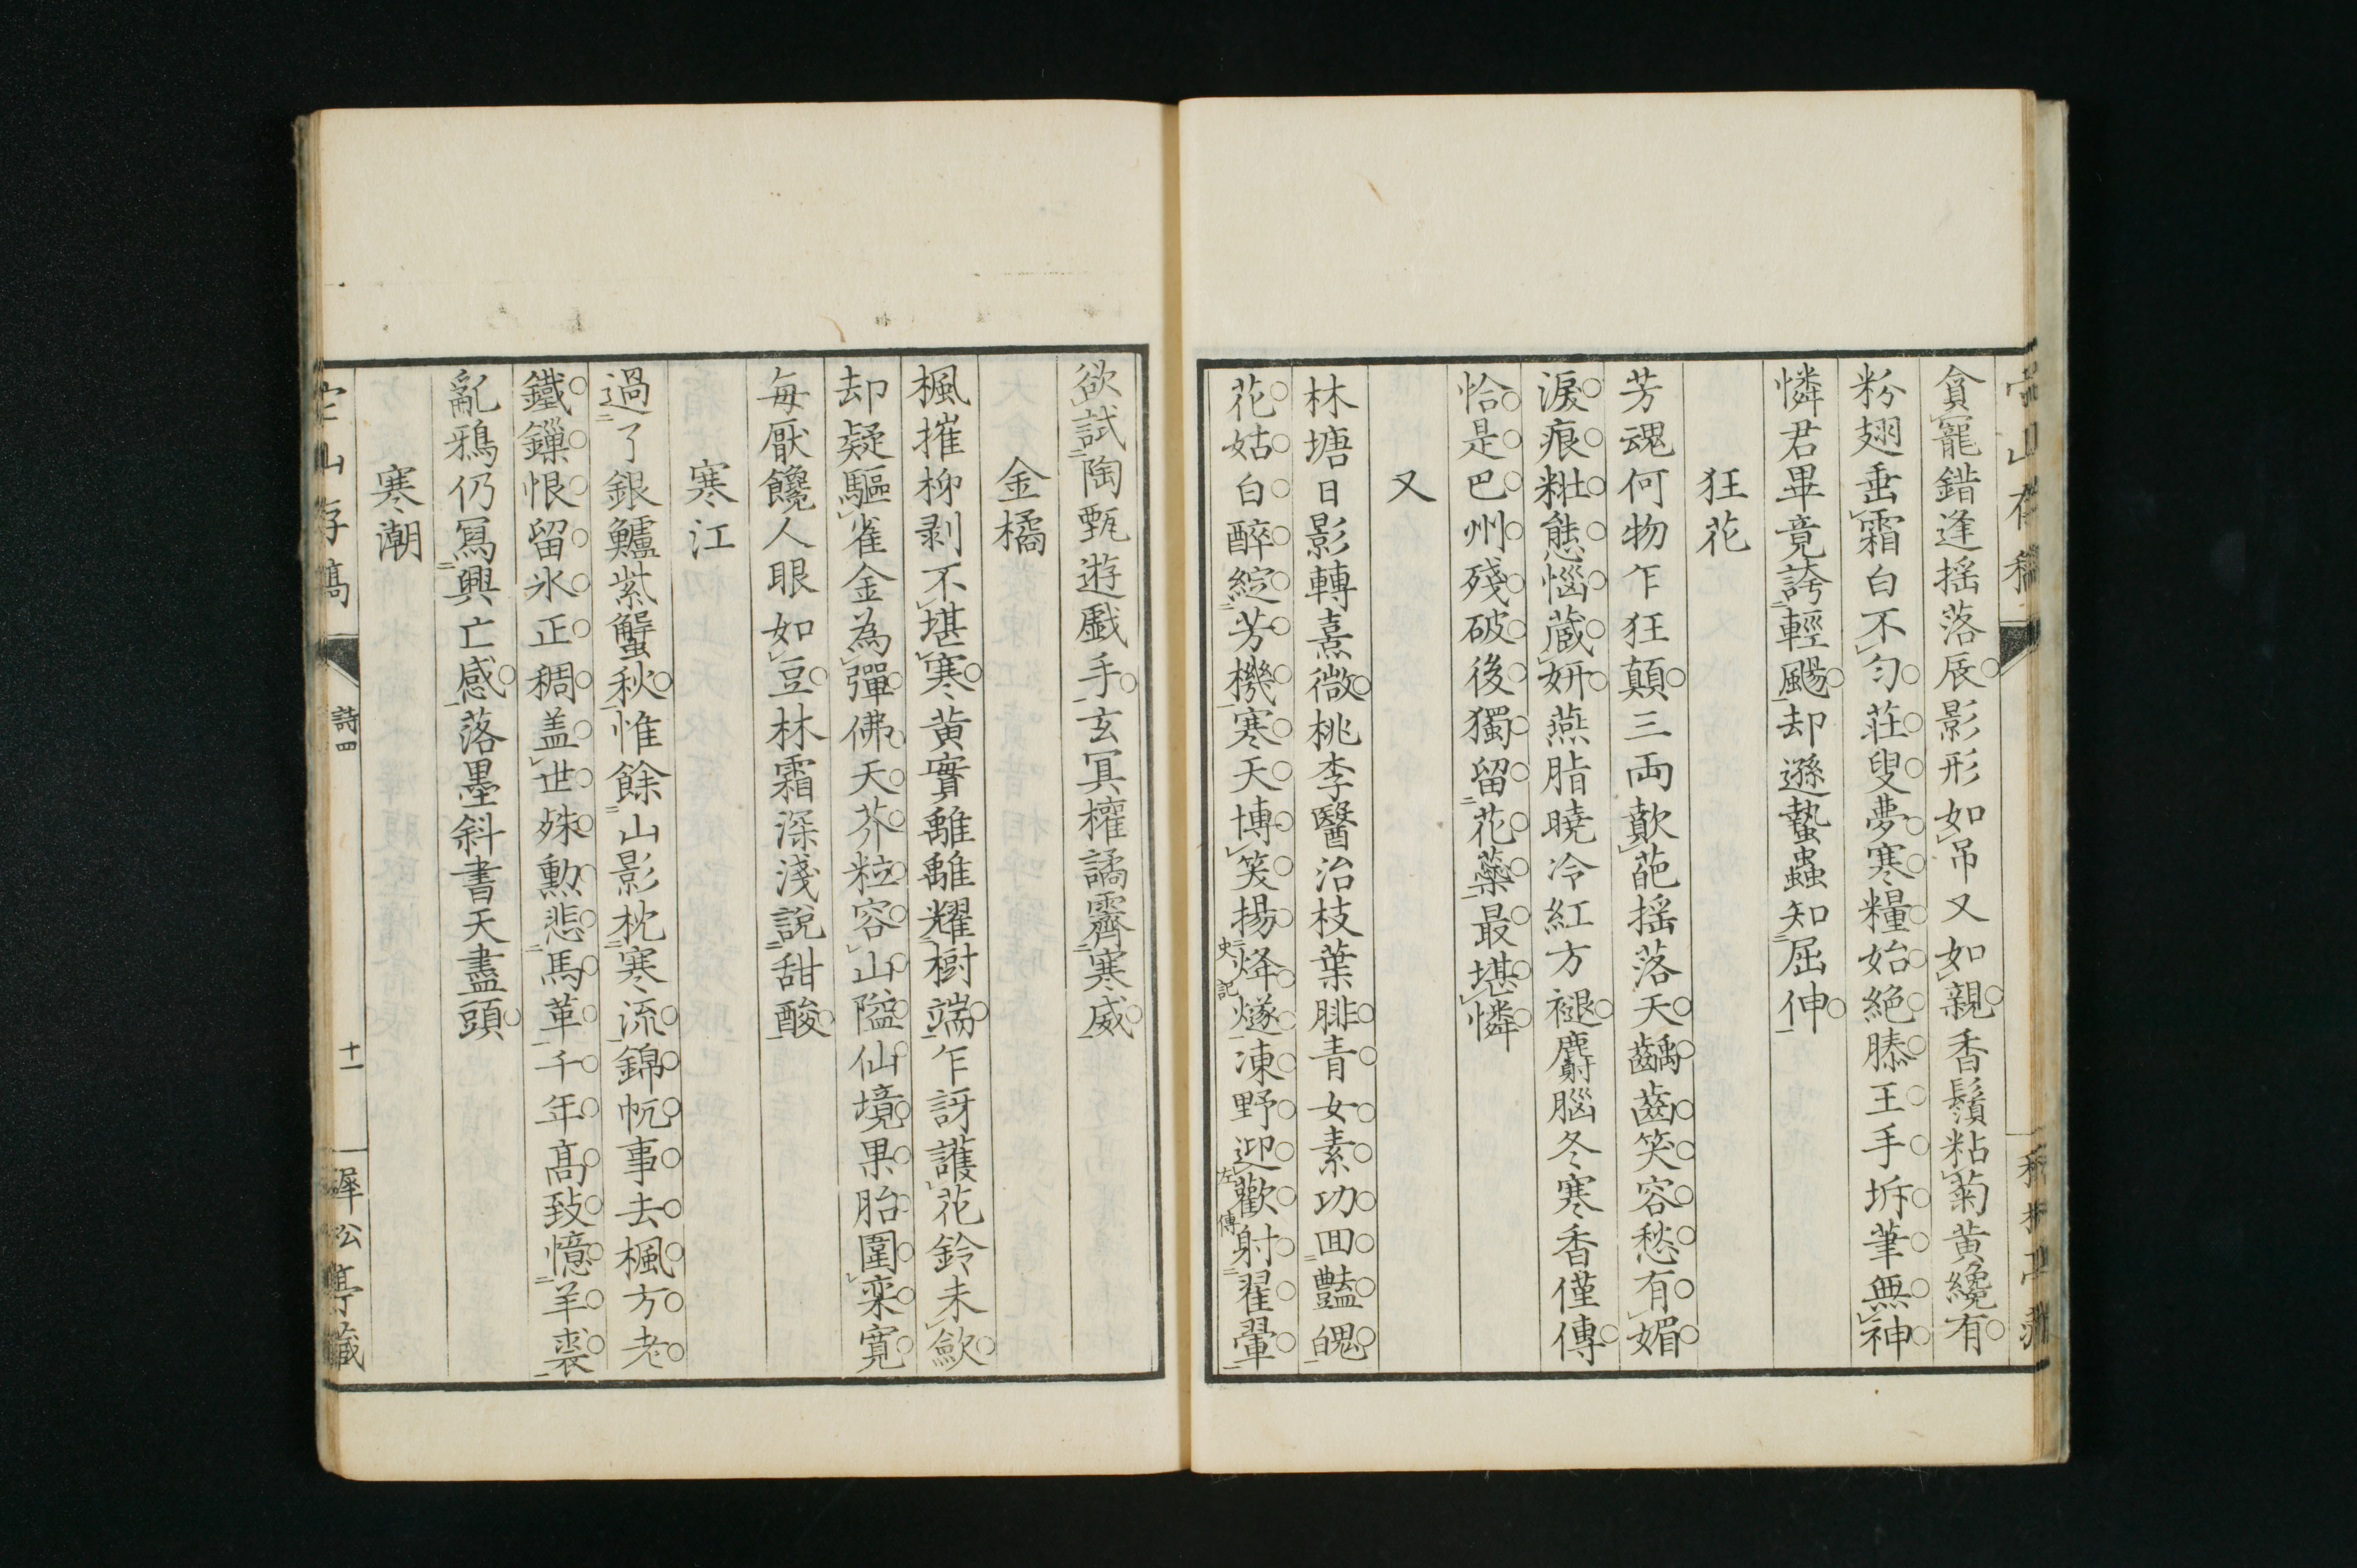 貪寵錯逢揺落辰影形如吊又如親香鬚粘菊黄纔有
粉翅垂霜白不匀莊叟夢寒糧始絶滕王手坼筆無神
憐君畢竟誇輕颺却遜蟄蟲知屈伸
狂花
芳魂何物乍狂顛三両欵葩揺落天齲齒笑容愁有媚
淚痕粧態惱蔵妍燕脂曉冷紅方褪麝腦冬寒香僅傳
恰是巴州殘破後獨留花蘂最堪憐
又
林塘日影轉熹微桃李醫治枝葉腓青女素功回豔魄
花姑白醉綻芳機寒天博笑揚烽燧凍野迎歡射翟翬
史記
左傳
欲試陶甄遊戯手玄冥權譎霽寒威
金橘
楓摧柳剥不堪寒黄實離離耀樹端乍訝護花鈴未歛
却疑驅雀金為彈佛天芥粒容山隘仙境果胎圍棗寛
毎厭饞人眼如豆林霜深淺説甜酸
寒江
過了銀鱸紫蟹秋惟餘山影枕寒流錦帆事去楓方老
鐵鏁恨留氷正稠盖世殊勲悲馬革千年髙致憶羊裘
亂鴉仍冩興亡感落墨斜書天盡頭
寒潮
山存稿
詩四
十一
犀松亭藏